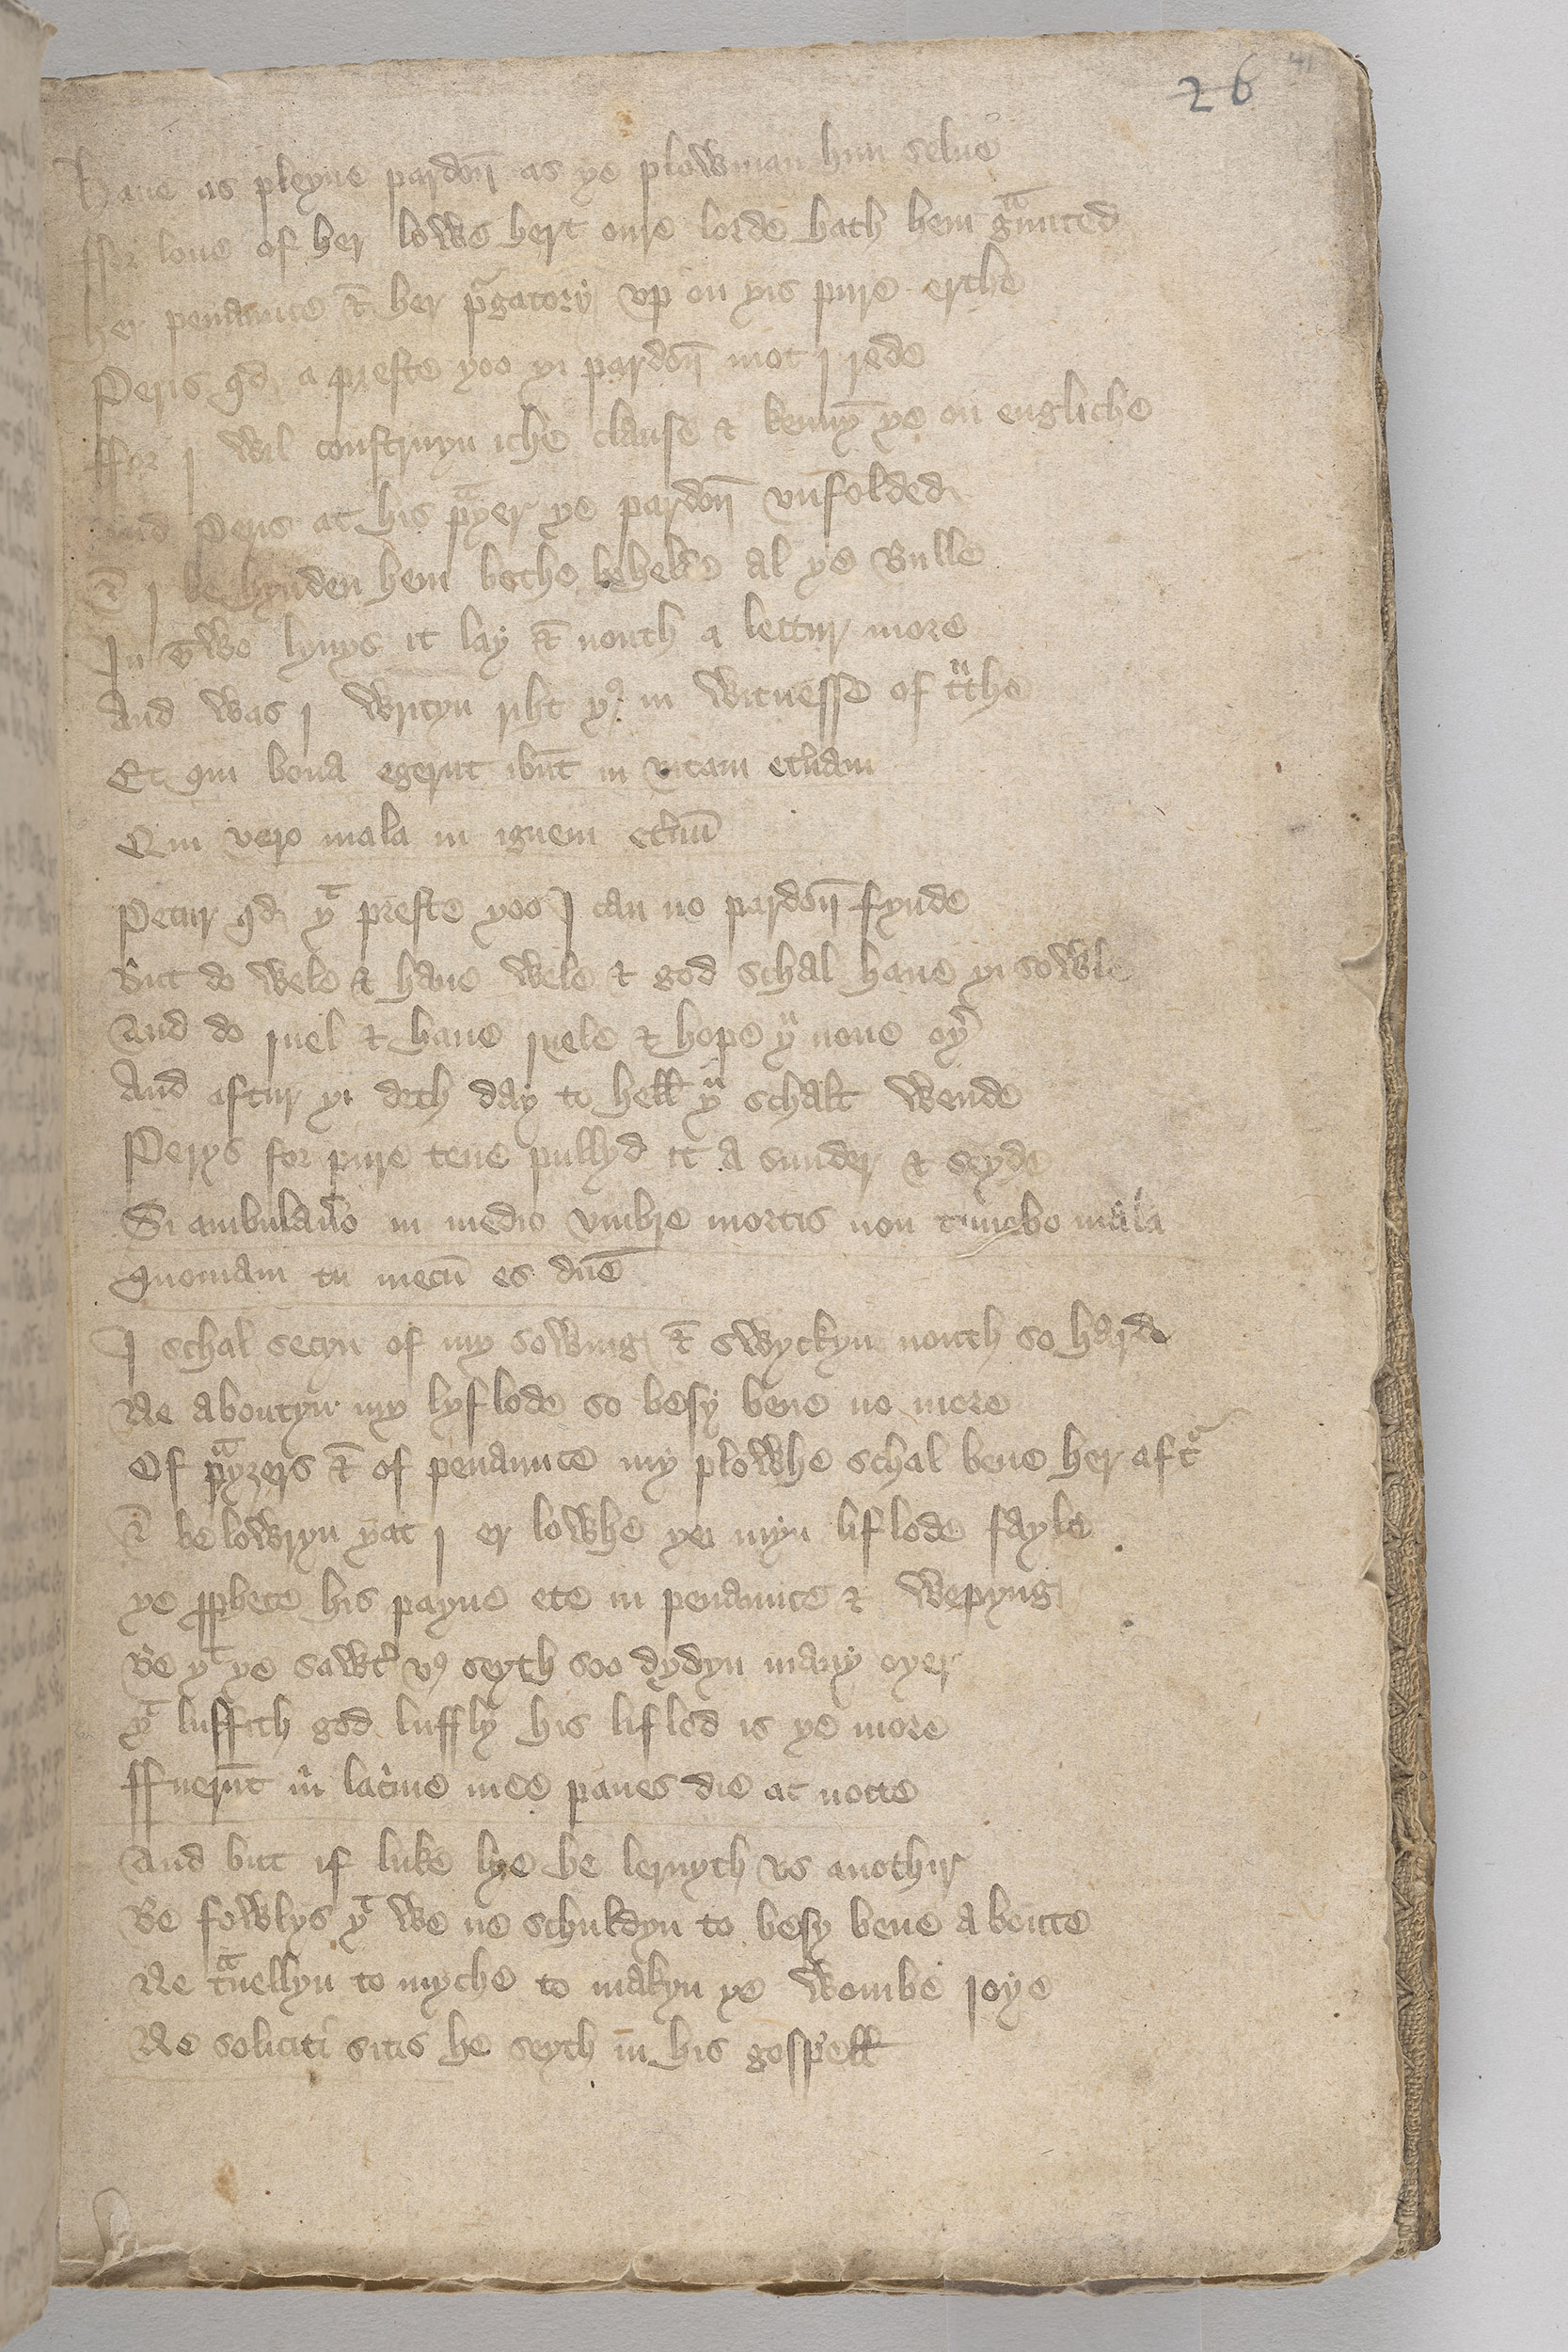 26 41
Haue as pleyne pardon̄ as ye plowman hym selue
ffor loue of her lowe hert oure lorde hath hem gᵃunted
her penaunce & her pᵉgatory vp on yis pure erthe
Peris qd a preste yoo yi pardon̄ mot j rede
ffor j wil construyn iche clause & kennyn̄ ye on engliche
And Peris at his pᵃyer ye pardon̄ vnfolded
& j be hynden hem bothe behelde al ye Bulle
In two lynys it lay & nouth a lettur more
And was j writyn riht yꝰ in witnesse of tᵘthe
Et qui bona egerūt ibūt in vitam et̉nam
Qui vero mala in ignem et̉nū
Petur qd yᵗ preste yoo J can no pardon̄ fynde
But do wele & haue wele & god schal haue yi sowle
And do juel & haue juele & hope yᵘ none oỷ
And aftur yi deth day to hell yᵘ schalt wende
Perys for pure tene pullyd it a sunder & seyde
Si ambulaủo in medio vmbre mortis non timebo mala
quoniam tu mecū es dn̄e
J schal secyn of my sowing & swyckyn nouth so harde
Ne aboutyn my lyflode so besy bene no more
Of pᵃyzers & of penaunce my plowhe schal bene her aft̉
& be lowryn yat j er lowhe yei myn liflode fayle
ye ꝓphete his payne ete in penaunce & wepyng
Be yᵗ ye sawt̉ vꝰ seyth soo dydyn many oyer
yᵗ luffith god luffly his liflod is ye more
ffuerūt m̉ lac̉me mee panes die ac nocte
And but if luke lye he lernyth vs anothir
Be fowlys yᵗ we ne schuldyn to besy bene a boute
Ne tᵃuellyn to myche to makyn ye wombe joye
Ne soliciti sitis he seyth in his gospell